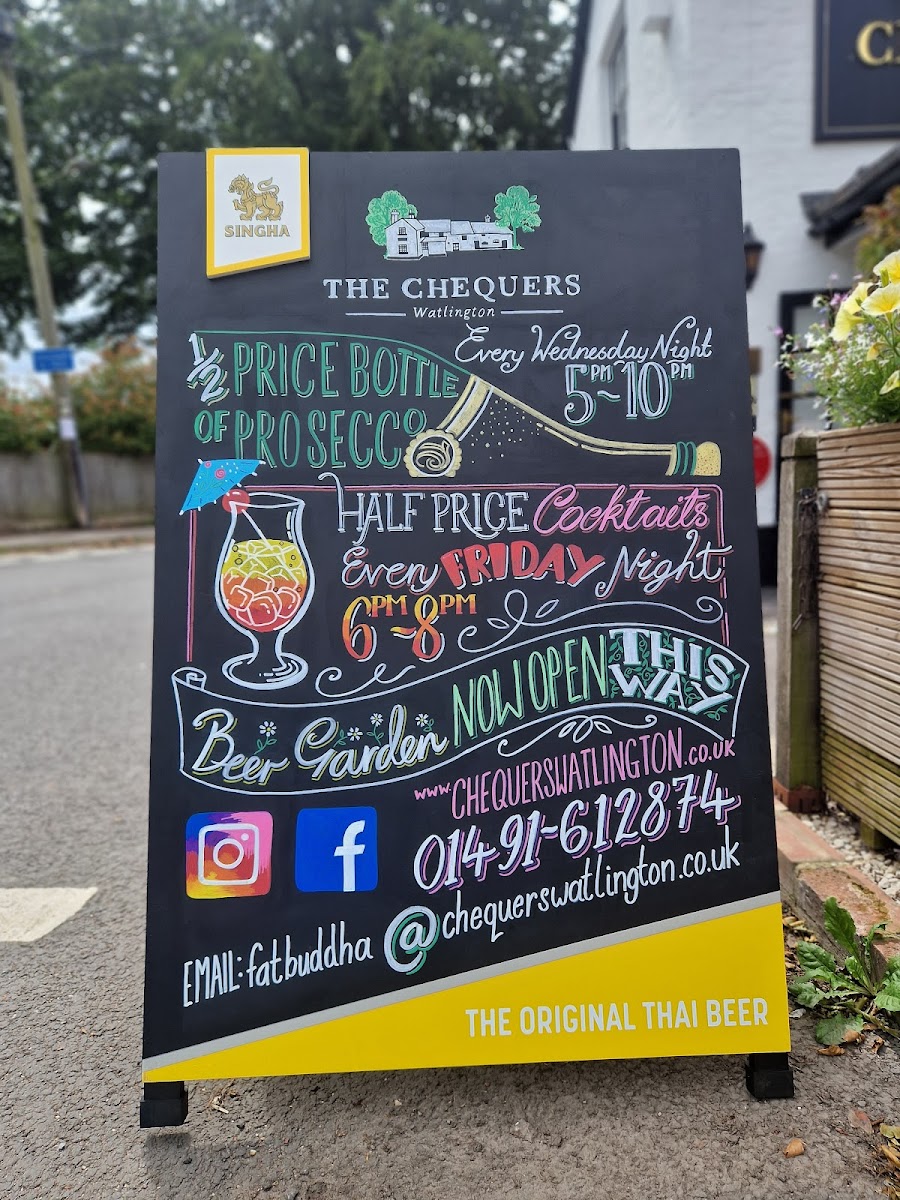 SINGHA
THE CHEQUERS
Watlington
1/2 PRICE BOTTLE
OF PROSECCO
Every Wednesday Night
5PM~10PM
HALF PRICE Cocktails
Every FRIDAY Night
6PM~8PM
Beer Garden NOW OPEN THIS WAY
www.CHEQUERSWATLINGTON.co.uk
01491-612874
EMAIL: fatbuddha @chequerswatlington.co.uk
THE ORIGINAL THAI BEER